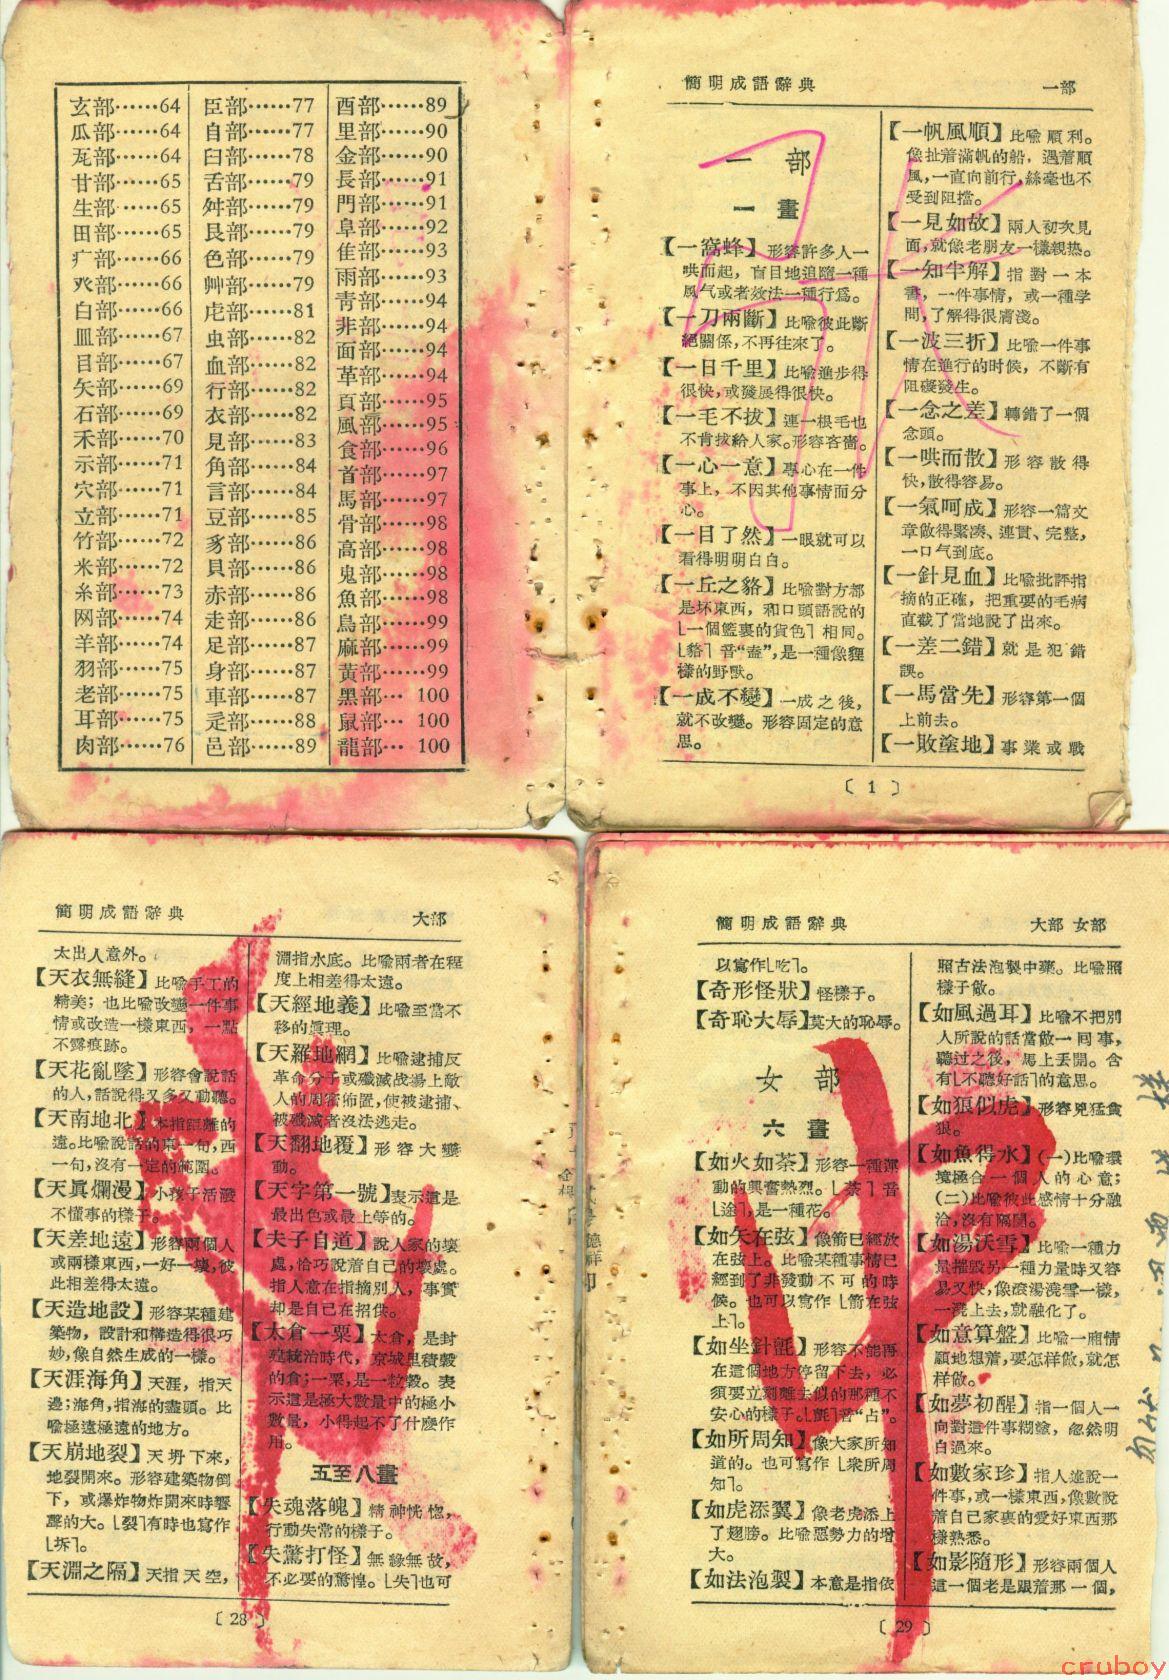 玄部……64
瓜部……64
瓦部……64
甘部……65
生部……65
田部……65
疒部……66
癶部……66
白部……66
皿部……67
目部……67
矢部……69
石部……69
禾部……70
示部……71
穴部……71
立部……71
竹部……72
米部……72
糸部……73
网部……74
羊部……74
羽部……75
老部……75
耳部……75
肉部……76
臣部……77
自部……77
臼部……78
舌部……79
舛部……79
艮部……79
色部……79
艸部……79
虍部……81
虫部……82
血部……82
行部……82
衣部……82
見部……83
角部……84
言部……84
豆部……85
豸部……86
貝部……86
赤部……86
走部……86
足部……87
身部……87
車部……87
辵部……88
邑部……89
酉部……89
里部……90
金部……90
長部……91
門部……91
阜部……92
隹部……93
雨部……93
靑部……94
非部……94
面部……94
革部……94
頁部……95
風部……95
食部……96
首部……97
馬部……97
骨部……98
高部……98
鬼部……98
魚部……98
鳥部……99
麻部……99
黃部……99
黑部… 100
鼠部… 100
龍部… 100
簡明成語辭典
一部
一 部
一 畫
【一窩蜂】 形容許多人一
哄而起，盲目地追隨一種
風气或者效法一種行爲。
【一刀兩斷】 比喩彼此斷
絕關係，不再往來了。
【一日千里】 比喩進步得
很快，或發展得很快。
【一毛不拔】 連一根毛也
不肯拔給人家。形容吝嗇。
【一心一意】 專心在一件
事上，不因其他事情而分
心。
【一目了然】 一眼就可以
看得明明白白。
【一丘之貉】 比喩對方都
是坏東西，和口頭語說的
⌊一個籃裏的貨色⌉相同。
⌊貉⌉音“盍”，是一種像貍
樣的野獸。
【一成不變】 一成之後，
就不改變。形容固定的意
思。
【一帆風順】 比喩順利。
像扯着滿帆的船，遇着順
風，一直向前行，絲毫也不
受到阻擋。
【一見如故】 兩人初次見
面，就像老朋友一樣親热。
【一知半解】 指對一本
書，一件事情，或一種学
問，了解得很膚淺。
【一波三折】 比喩一件事
情在進行的时候，不斷有
阻礙發生。
【一念之差】 轉錯了一個
念頭。
【一哄而散】 形容散得
快，散得容易。
【一氣呵成】 形容一篇文
章做得緊凑、連貫、完整，
一口气到底。
【一針見血】 比喩批評指
摘的正確，把重要的毛病
直截了當地說了出來。
【一差二錯】 就是犯錯
誤。
【一馬當先】 形容第一個
上前去。
【一敗塗地】 事業或戰
〔 1 〕
簡明成語辭典
大部
太出人意外。
【天衣無縫】 比喩手工的
精美；也比喩改變一件事
情或改造一樣東西，一點
不露痕跡。
【天花亂墜】 形容會說話
的人，話說得又多又動聽。
【天南地北】 本指距離的
遠。比喩說話的東一句，西
一句，沒有一定的範圍。
【天眞爛漫】 小孩子活潑
不懂事的樣子。
【天差地遠】 形容兩個人
或兩樣東西，一好一壞，彼
此相差得太遠。
【天造地設】 形容某種建
築物，設計和構造得很巧
妙，像自然生成的一樣。
【天涯海角】 天涯，指天
邊；海角，指海的盡頭。比
喩極遠極遠的地方。
【天崩地裂】 天坍下來，
地裂開來。形容建築物倒
下，或爆炸物炸開來時響
聲的大。⌊裂⌉有時也寫作
⌊坼⌉。
【天淵之隔】 天指天空，
淵指水底。比喩兩者在程
度上相差得太遠。
【天經地義】 比喩至當不
移的眞理。
【天羅地網】 比喩逮捕反
革命分子或殲滅战塲上敵
人的周密佈置，使被逮捕、
被殲滅者沒法逃走。
【天翻地覆】 形容大變
動。
【天字第一號】表示這是
最出色或最上等的。
【夫子自道】 說人家的壞
處，恰巧說着自己的壞處。
指人意在指摘別人，事實
却是自己在招供。
【太倉一粟】 太倉，是封
建統治時代，京城里積穀
的倉；一粟，是一粒穀。表
示這是極大數量中的極小
數量，小得起不了什麽作
用。
五至八畫
【失魂落魄】 精神恍惚，
行動失常的樣子。
【失驚打怪】 無緣無故，
不必要的驚惶。⌊失⌉也可
〔 28 〕
簡明成語辭典
大部 女部
以寫作⌊吃⌉。
【奇形怪狀】 怪樣子。
【奇恥大辱】莫大的恥辱。
女 部
六 畫
【如火如荼】 形容一種運
動的興奮熱烈。⌊荼⌉音
⌊途⌉，是一種花。
【如矢在弦】 像箭已經放
在弦上。比喩某種事情已
經到了非發動不可的時
候。也可以寫作⌊箭在弦
上⌉。
【如坐針氈】 形容不能再
在這個地方停留下去，必
須要立刻離去似的那種不
安心的樣子。⌊氈⌉音“占”。
【如所周知】 像大家所知
道的。也可寫作⌊衆所周
知⌉。
【如虎添翼】 像老虎添上
了翅膀。比喩惡勢力的增
大。
【如法泡製】 本意是指依
照古法泡製中藥。比喩照
樣子做。
【如風過耳】 比喩不把別
人所說的話當做一回事，
聽过之後，馬上丟開。含
有⌊不聽好話⌉的意思。
【如狼似虎】 形容兇猛貪
狠。
【如魚得水】 (一)比喩環
境極合一個人的心意；
(二)比喩彼此感情十分融
洽，沒有隔閡。
【如湯沃雪】 比喩一種力
量摧毁另一種力量時又容
易又快，像滾湯澆雪一樣，
一澆上去，就融化了。
【如意算盤】 比喩一廂情
願地想着，要怎样做，就怎
样做。
【如夢初醒】 指一個人一
向對這件事糊塗，忽然明
白過來。
【如數家珍】 指人述說一
件事，或一樣東西，像數說
着自己家裏的愛好東西那
樣熟悉。
【如影隨形】 形容兩個人
這一個老是跟着那一個，
〔 29 〕
cruboy